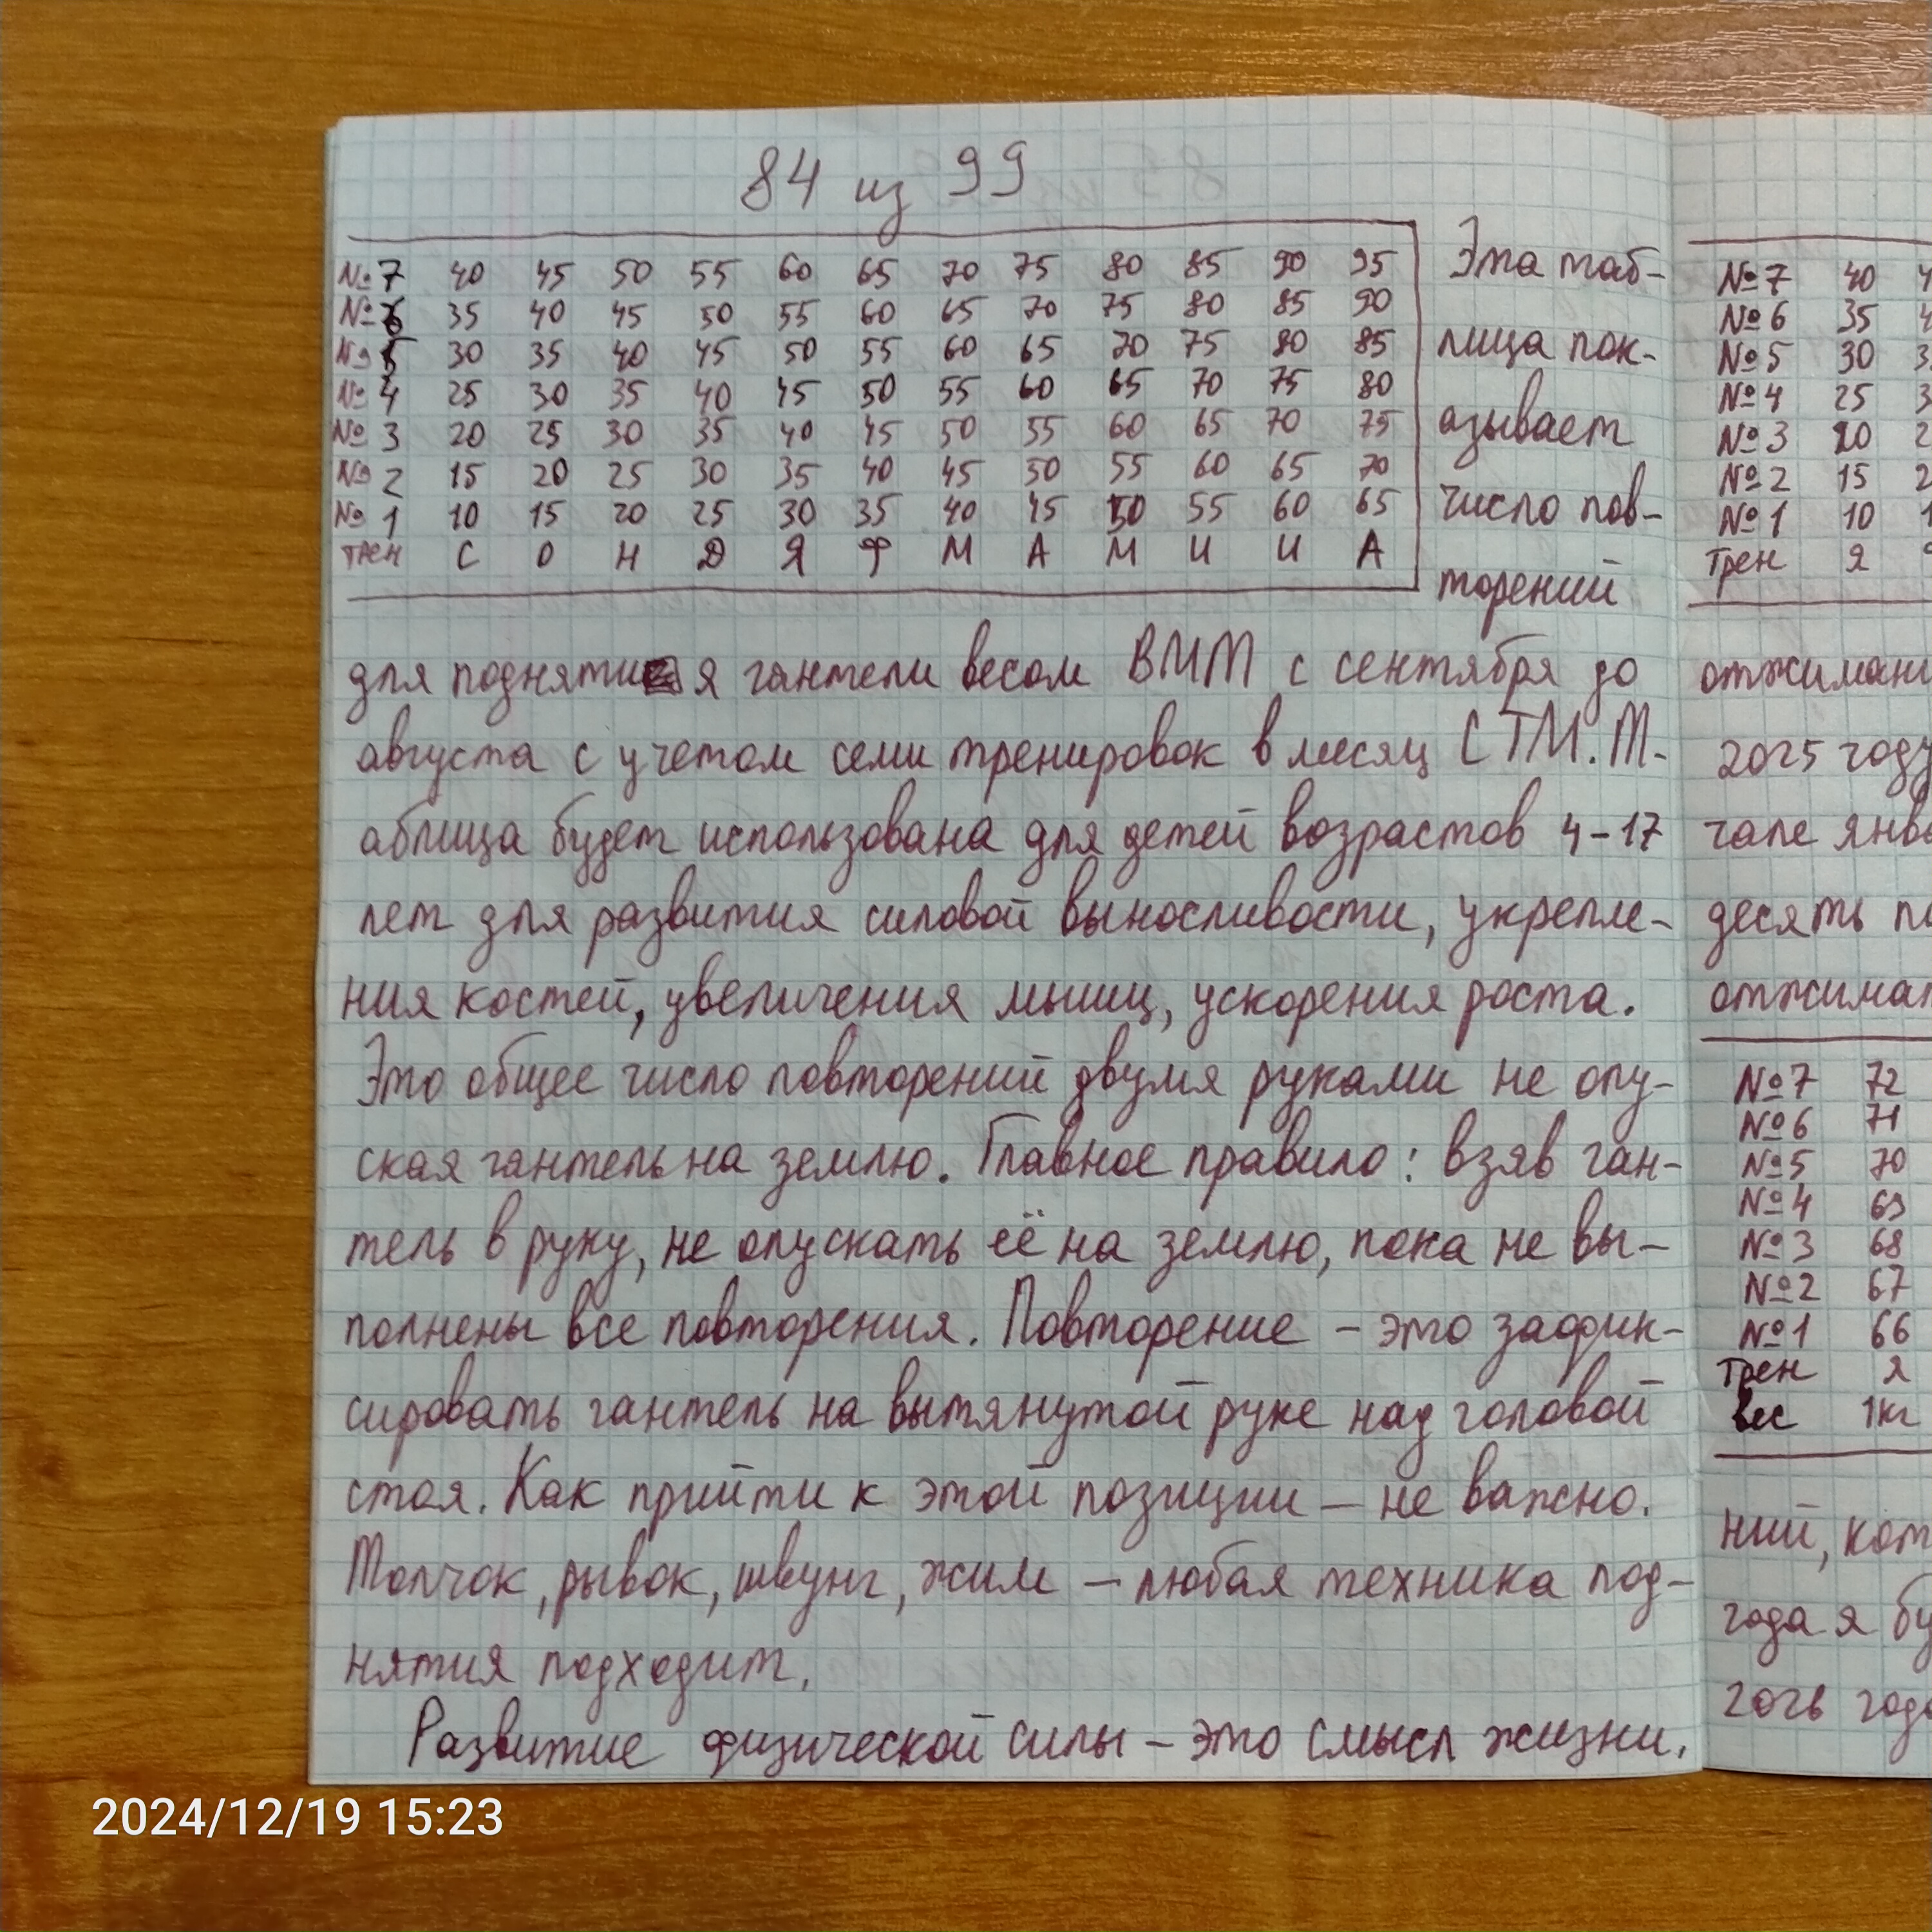 84 из 99
№7 40 45 50 55 60 65 70 75 80 85 90 95
№6 35 40 45 50 55 60 65 70 75 80 85 90
№5 30 35 40 45 50 55 60 65 70 75 80 85
№4 25 30 35 40 45 50 55 60 65 70 75 80
№3 20 25 30 35 40 45 50 55 60 65 70 75
№2 15 20 25 30 35 40 45 50 55 60 65 70
№1 10 15 20 25 30 35 40 45 50 55 60 65
трен С О Н Д Я Ф М А М И И А
Эта таб-
лица пок-
азывает
число пов-
торений
для поднятия гантели весом ВМТ с сентября до
августа с учетом семи тренировок в месяц СТМ. Т-
аблица будет использована для детей возрастов 4-17
лет для развития силовой выносливости, укрепле-
ния костей, увеличения мышц, ускорения роста.
Это общее число повторений двумя руками не опу-
ская гантель на землю. Главное правило: взяв ган-
тель в руку, не опускать её на землю, пока не вы-
полнены все повторения. Повторение – это зафик-
сировать гантель на вытянутой руке над головой
стоя. Как прийти к этой позиции – не важно.
Толчок, рывок, швунг, жим – любая техника под-
нятия подходит.
Развитие физической силы – это смысл жизни.
№7 40
№6 35
№5 30
№4 25
№3 20
№2 15
№1 10
Трен Я
отжимани
2025 году
чале янва
десять по
отжиман
№7 72
№6 71
№5 70
№4 69
№3 68
№2 67
№1 66
Трен Я
вес 1кг
ний, кот
года я бу
2026 годо
2024/12/19 15:23